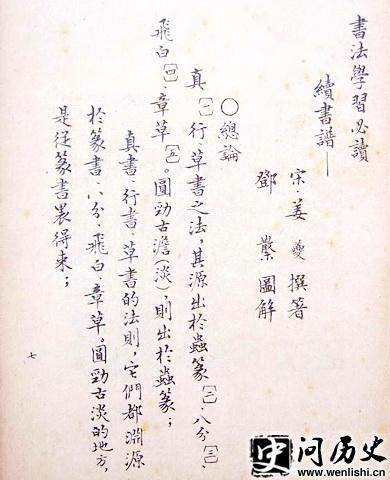 書法學習必讀
續書譜——
宋·姜夔撰著
鄧散圖解
○總論
真〔一〕、行、草書之法，其源出於蟲篆〔二〕、八分〔三〕、
飛白〔四〕、章草〔五〕。圓勁古澹(淡)，則出於蟲篆；
真書、行書、草書的法則，它們都淵源
於篆書、八分、飛白、章草。圓勁古淡的地方，
是從篆書裏得來；
七
史问历史
www.wenlishi.cn